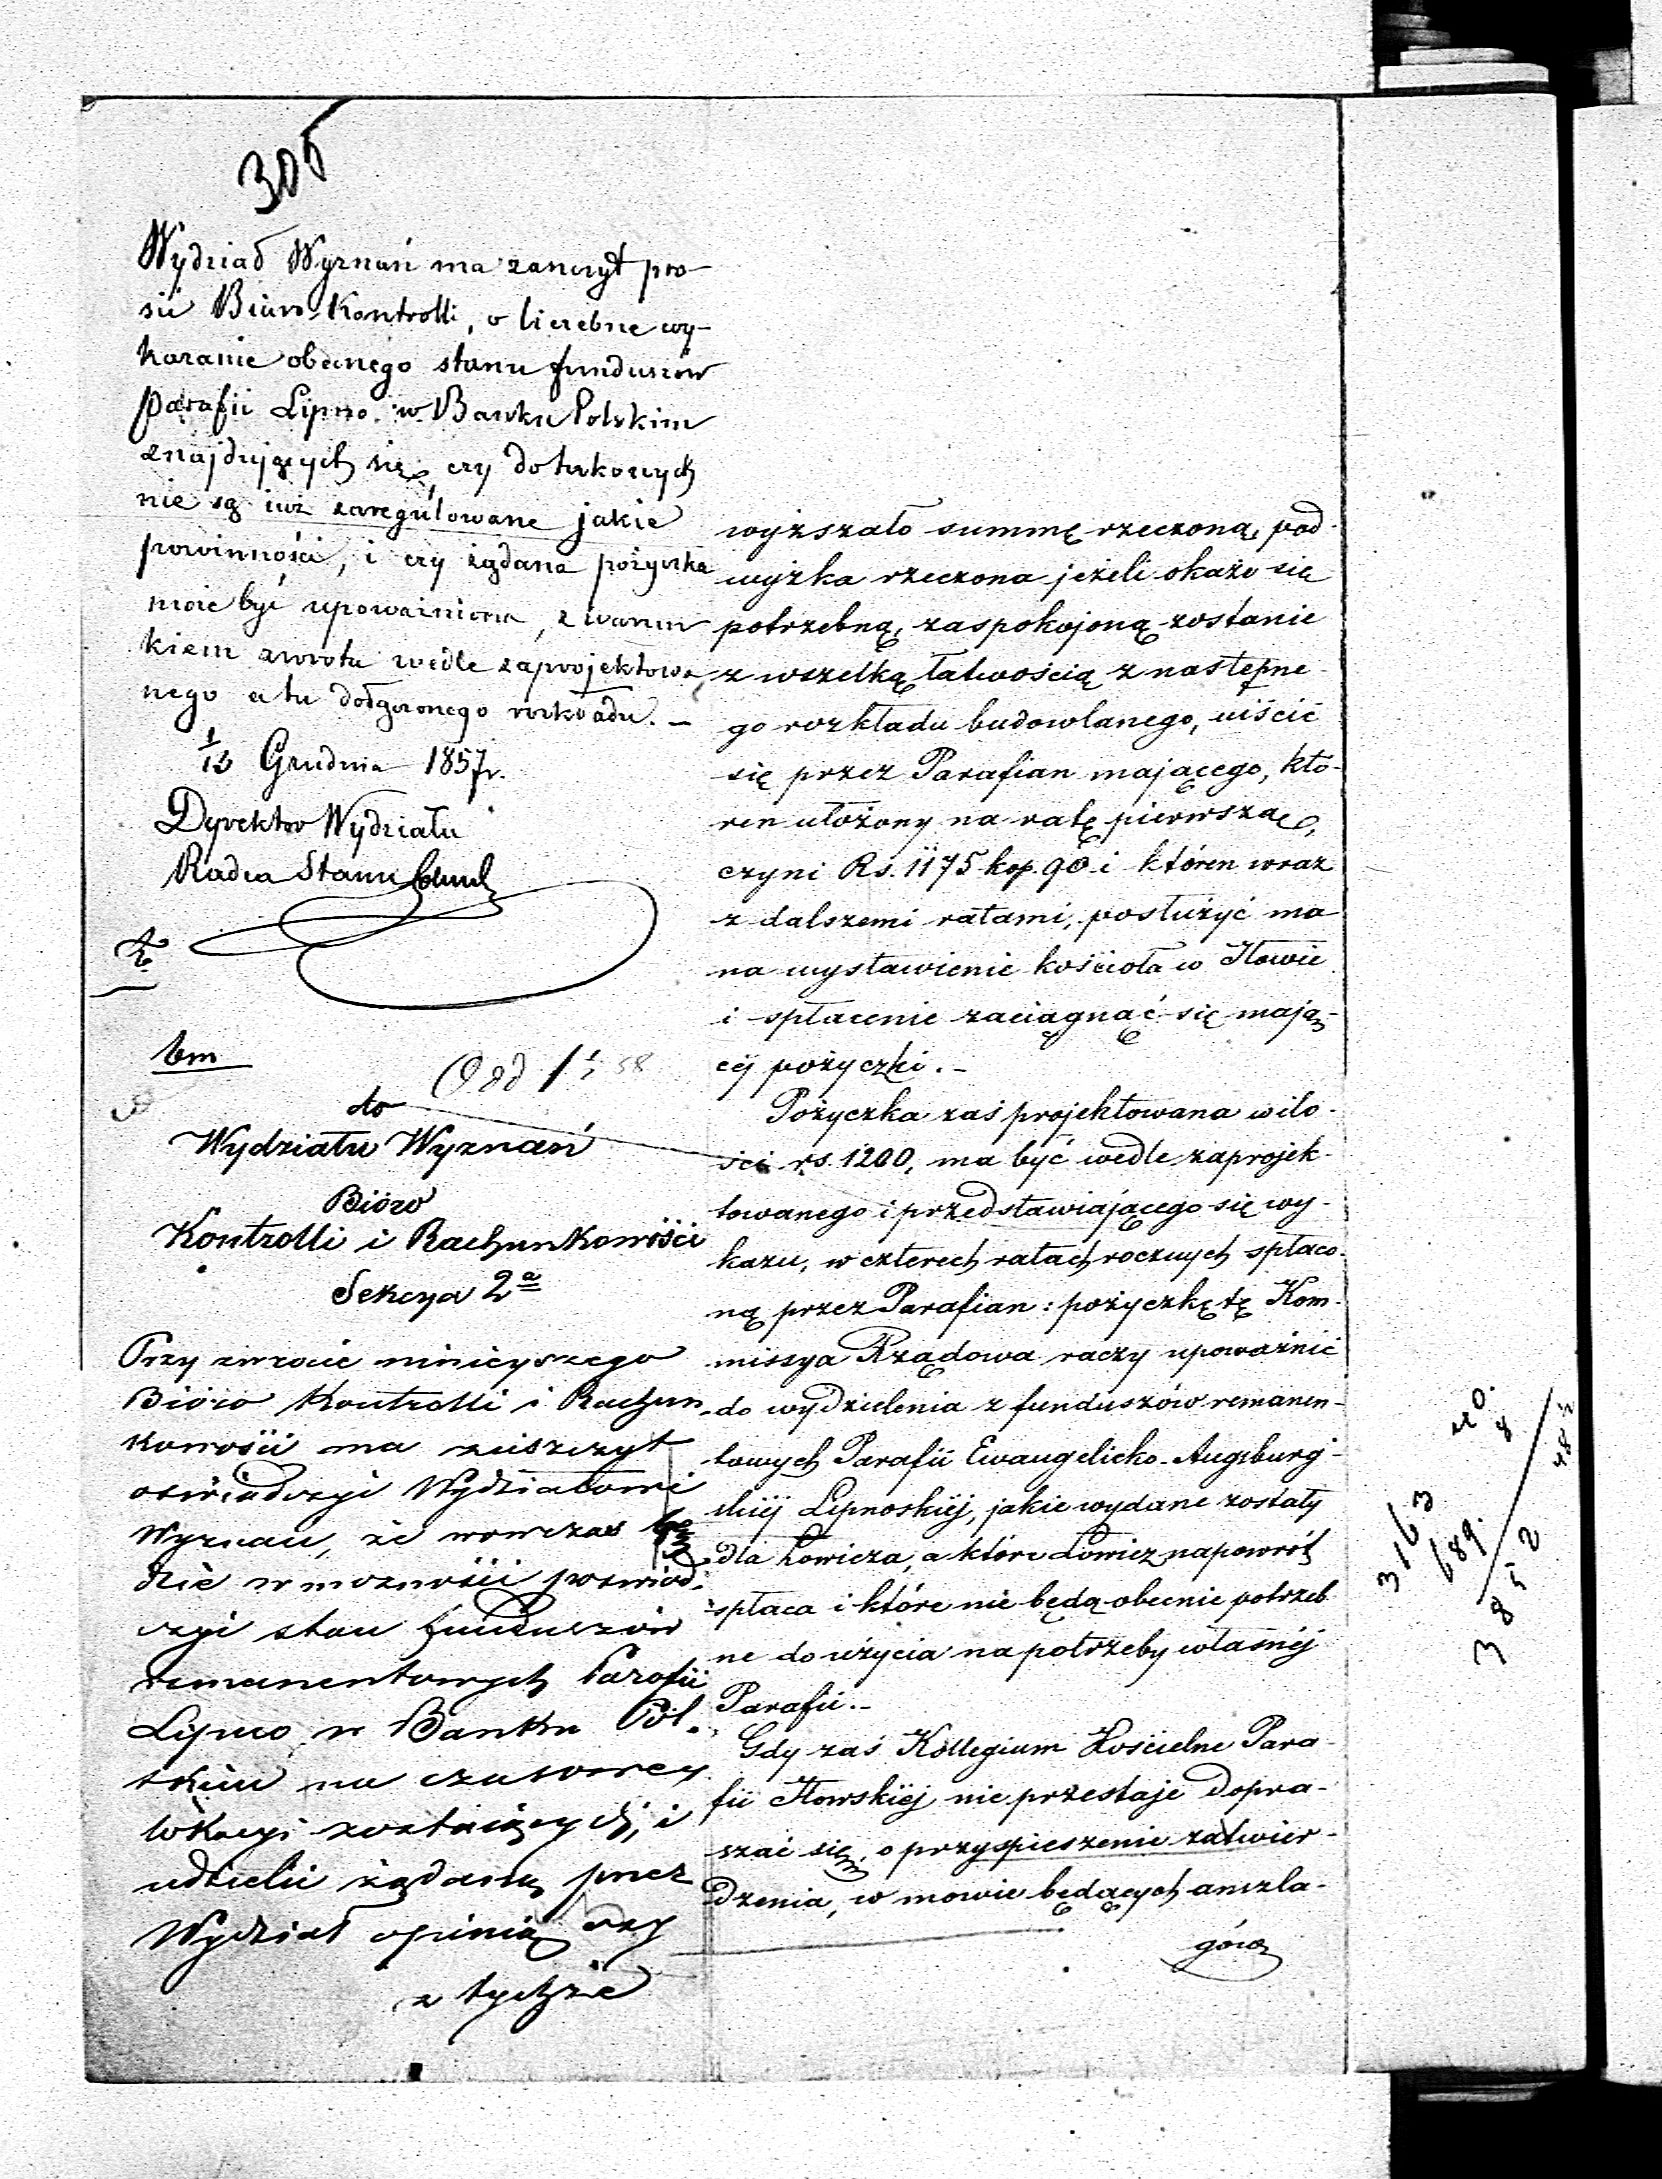 306
Wydział Wyznań ma zaszczyt pro-
sić Biuro Kontrolli, o liczebne wy-
kazanie obecnego stanu funduszów
Parafii Lipno w Banku Polskim
znajdujących się, czy do takowych
nie są już zaregulowane jakie
powinności, i czy żądana pożyczka
może być upoważniona, z warun
kiem zwrotu wedle zaprojektowa
nego a tu dołączonego rozkładu. –
1/13 Grudnia 1857 r.
Dyrektor Wydziału
Radca Stanu
do
Wydziału Wyznań
Bióro
Kontrolli i Rachunkowości
Sekcya 2a
Przy zwrocie niniejszego
Bióro Kontrolli i Rachun
kowości ma zaszczyt
oświadczyć Wydziałowi
Wyznań, że wówczas bę
dzie w możności poświad-
czyć stan funduszów
remanentowych Parafii
Lipno w Banku Pol-
skim na czasowej
lokacyi zostających, i
udzielić żądaną przez
Wydział opinią czy
z tychże
wyższało summę rzeczoną, pod-
wyżka rzeczona jeżeli okaże się
potrzebną, zaspokojoną zostanie
z wszelką łatwością z następne-
go rozkładu budowlanego, uiścić
się przez Parafian mającego, któ-
ren ułożony na ratę pierwszą,
czyni Rs. 1175 kop. 90 i któren wraz
z dalszemi ratami, posłużyć ma
na wystawienie kościoła w Iłowie
i spłacenie zaciągnąć się mają-
céj pożyczki. –
Pożyczka zaś projektowana w ilo-
ści rs. 1200, ma być wedle zaprojek-
towanego i przedstawiającego się wy-
kazu, w czterech ratach rocznych spłaco-
ną przez Parafian: pożyczkę tę Kom-
missya Rządowa raczy upoważnić
do wydzielenia z funduszów remanen-
towych Parafii Ewangelicko-Augsburg-
skiéj Lipnoskiéj, jakie wydane zostały
dla Łowicza, a które Łowicz napowrót
spłaca i które nie będą obecnie potrzeb
ne do użycia na potrzeby własnéj
Parafii. –
Gdy zaś Kollegium Kościelne Para-
fii Iłowskiéj nie przestaje dopra-
szać się, o przyspieszenie zatwier-
dzenia, w mowie będących anszla-
gów
3163
689.
3852